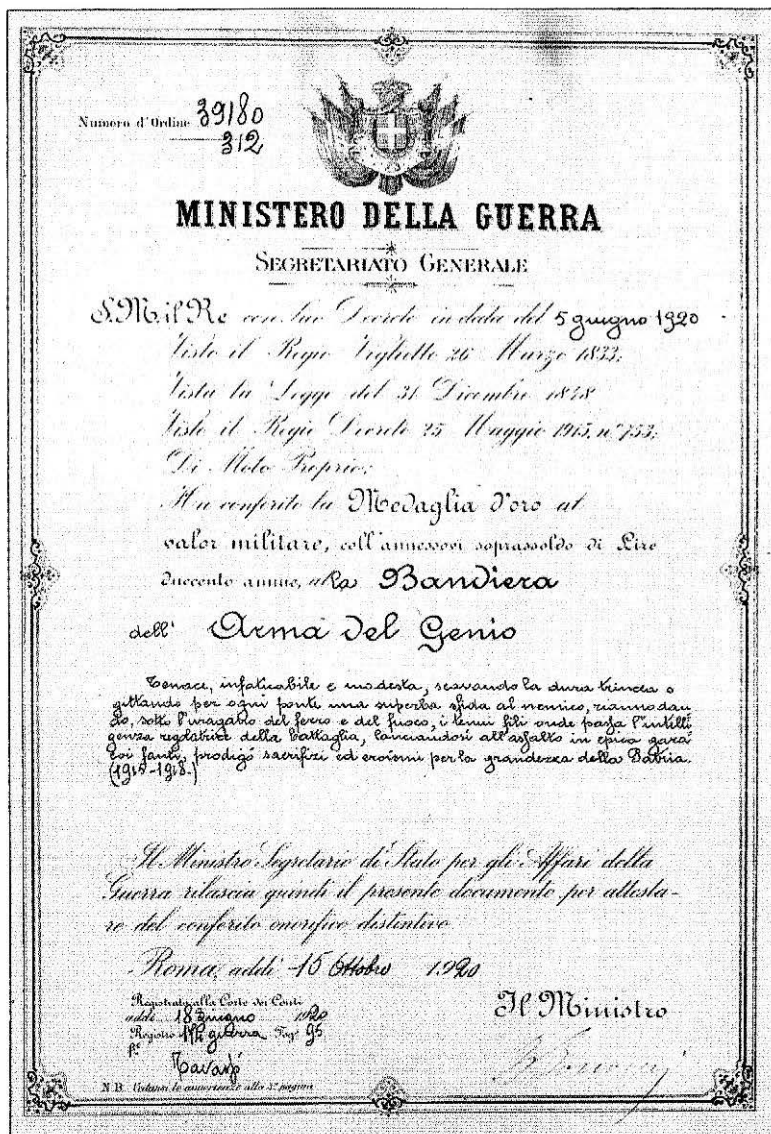 Numero d'Ordine 39180
312
MINISTERO DELLA GUERRA
SEGRETARIATO GENERALE
S.M. il Re con suo Decreto in data del 5 giugno 1920
Visto il Regio Viglietto 26 Marzo 1833;
Vista la Legge del 31 Dicembre 1848
Visto il Regio Decreto 25 Maggio 1915, n° 753;
Di Moto Proprio;
Ha conferito la Medaglia d'oro al
valor militare, coll'annessovi soprassoldo di Lire
duecento annue, alla Bandiera
dell' Arma del Genio
Tenace, infaticabile e modesta, scavando la dura trincea o
gittando per ogni ponte una superba sfida al nemico, riannodan
do, sotto l'uragano del ferro e del fuoco, i tenui fili onde passa l'intelli
genza regolatrice della battaglia, lanciandosi all'assalto in epica gara
coi fanti, prodigò sacrifizi ed eroismi per la grandezza della Patria.
(1915-1918.)
Il Ministro Segretario di Stato per gli Affari della
Guerra rilascia quindi il presente documento per attesta-
re del conferito onorifico distintivo.
Roma, addì 15 Ottobre 1920
Registrato alla Corte dei Conti
addì 18 giugno 1920
Registro 172 guerra Fog° 95
Il Ministro
N.B. Vedansi le avvertenze alla 3ª pagina